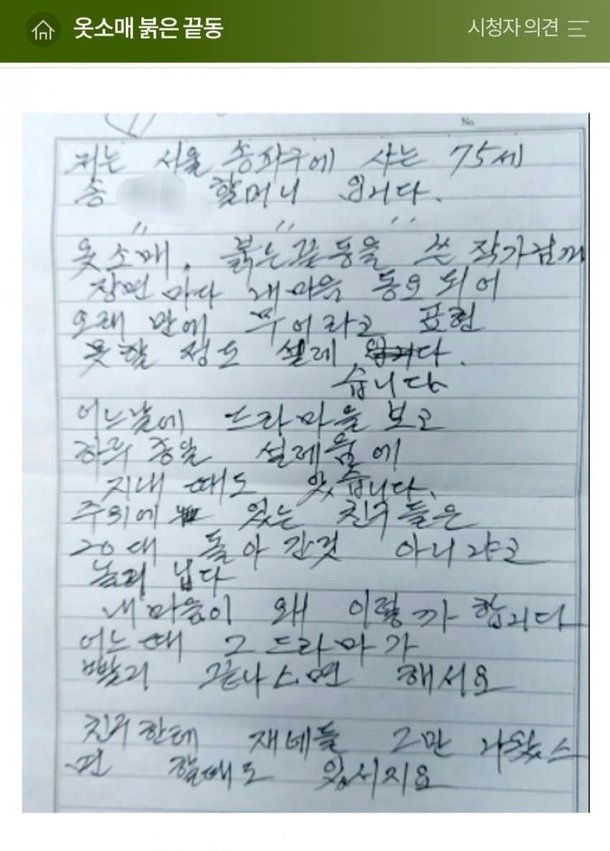 옷소매 붉은 끝동
시청자 의견
No.
저는 서울 송파구에 사는 75세
송 할머니 입니다.
옷소매. 붉은끝동을 쓴 작가님께
장면 마다 내마음 동요 되어
오래 만에 무어라고 표현
못할 정도 설레 입니다.
습니다
어느날에 드라마을 보고
하루 종일 설레움에
지내 때도 있습니다.
주위에 있는 친구들은
20대 돌아 간것 아니냐고
놀리 닙다
내마음이 왜 이럴까 합니다
어느때 그 드라마가
빨리 끝나스면 해서요
친구한테 재네들 그만 나왔스
면 할때도 있시지요